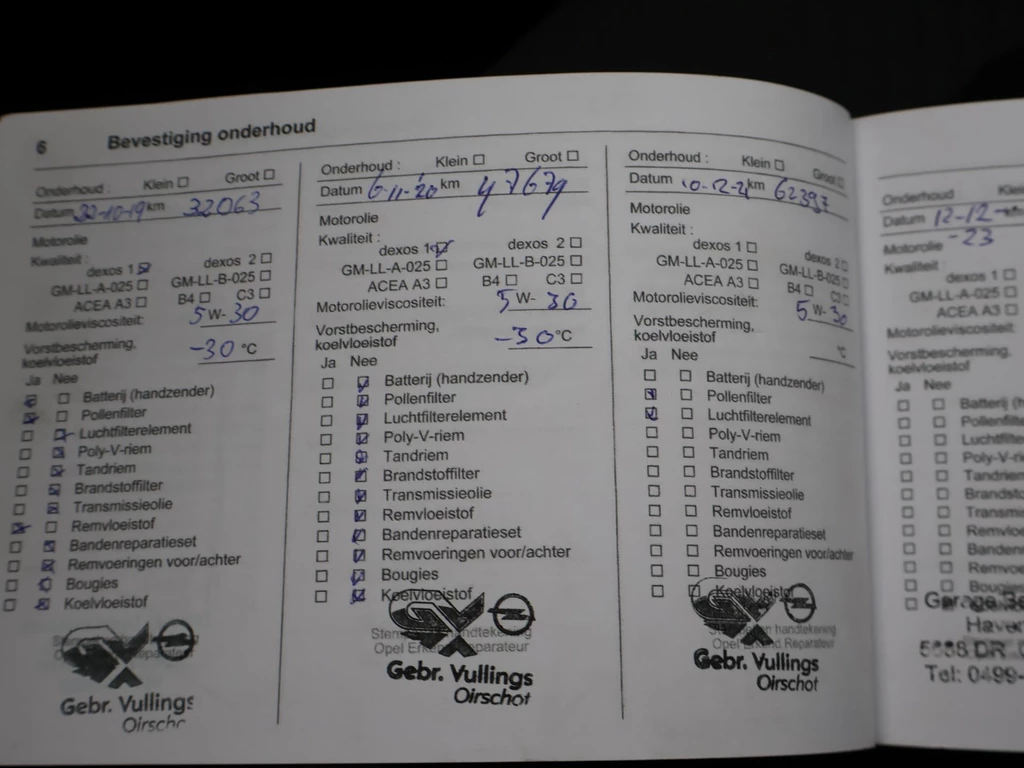 6 Bevestiging onderhoud
Onderhoud : Klein Groot
Datum 22-10-19 km 32063
Motorolie
Kwaliteit :
dexos 1 dexos 2
GM-LL-A-025 GM-LL-B-025
ACEA A3 B4 C3
Motorolieviscositeit: 5 W- 30
Vorstbescherming,
koelvloeistof -30 °C
Ja Nee
Batterij (handzender)
Pollenfilter
Luchtfilterelement
Poly-V-riem
Tandriem
Brandstoffilter
Transmissieolie
Remvloeistof
Bandenreparatieset
Remvoeringen voor/achter
Bougies
Koelvloeistof
Gebr. Vullings
Oirschot
Onderhoud : Klein Groot
Datum 6-11-20 km 47679
Motorolie
Kwaliteit :
dexos 1 dexos 2
GM-LL-A-025 GM-LL-B-025
ACEA A3 B4 C3
Motorolieviscositeit: 5 W- 30
Vorstbescherming,
koelvloeistof -30 °C
Ja Nee
Batterij (handzender)
Pollenfilter
Luchtfilterelement
Poly-V-riem
Tandriem
Brandstoffilter
Transmissieolie
Remvloeistof
Bandenreparatieset
Remvoeringen voor/achter
Bougies
Koelvloeistof
Gebr. Vullings
Oirschot
Onderhoud : Klein Groot
Datum 10-12-21 km 62397
Motorolie
Kwaliteit :
dexos 1 dexos 2
GM-LL-A-025 GM-LL-B-025
ACEA A3 B4 C3
Motorolieviscositeit: 5 W- 30
Vorstbescherming,
koelvloeistof °C
Ja Nee
Batterij (handzender)
Pollenfilter
Luchtfilterelement
Poly-V-riem
Tandriem
Brandstoffilter
Transmissieolie
Remvloeistof
Bandenreparatieset
Remvoeringen voor/achter
Bougies
Koelvloeistof
handtekening
Opel Erkend Reparateur
Gebr. Vullings
Oirschot
Onderhoud
Datum 12-12-
Motorolie -23
Kwaliteit :
dexos 1
GM-LL-A-025
ACEA A3
Motorolieviscositeit:
Vorstbescherming,
koelvloeistof
Ja Nee
Garage
5688 DR
Tel: 0499-